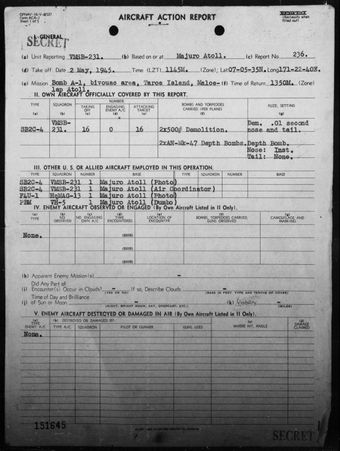 AIRCRAFT ACTION REPORT
I. GENERAL
SECRET
(a) Unit Reporting VMSB-231. (b) Based on or at Majuro Atoll. (c) Report No 236.
(d) Take off: Date 2 May, 1945. Time (LZT) 1145M. (Zone); Lat. 07-05-35N. Long. 171-22-40N.
(e) Mission Bomb A-1, bivouac area, Taroa Island, Maloe- (f) Time of Return 1350M. (Zone)
lap Atoll.
II. OWN AIRCRAFT OFFICIALLY COVERED BY THIS REPORT.
TYPE SQUADRON NUMBER BOMBS AND TORPEDOES FUZE, SETTING
TAKING OFF ENGAGING ENEMY A/C ATTACKING TARGET CARRIED (PER PLANE)
VMSB- Dem. .01 second
SB2C-4 231. 16 0 16 2x500# Demolition. nose and tail.
2xAN-Mk-47 Depth Bombs. Depth Bomb.
Nose: Inst.
Tail: None.
III. OTHER U. S. OR ALLIED AIRCRAFT EMPLOYED IN THIS OPERATION.
TYPE SQUADRON NUMBER BASE TYPE SQUADRON NUMBER BASE
SB2C-4 VMSB-231 1 Majuro Atoll (Photo)
SB2C-4 VMSB-231 1 Majuro Atoll (Air Coordinator)
F4U-1 HqMAG-13 1 Majuro Atoll (Photo)
PBM VH-5 1 Majuro Atoll (Dumbo)
IV. ENEMY AIRCRAFT OBSERVED OR ENGAGED (By Own Aircraft Listed in II Only).
None.
(h) Apparent Enemy Mission(s)
Did Any Part of
(i) Encounter(s) Occur in Clouds? If so, Describe Clouds
Time of Day and Brilliance
(j) of Sun or Moon (k) Visibility
V. ENEMY AIRCRAFT DESTROYED OR DAMAGED IN AIR (By Own Aircraft Listed in II Only).
None.
151645
SECRET